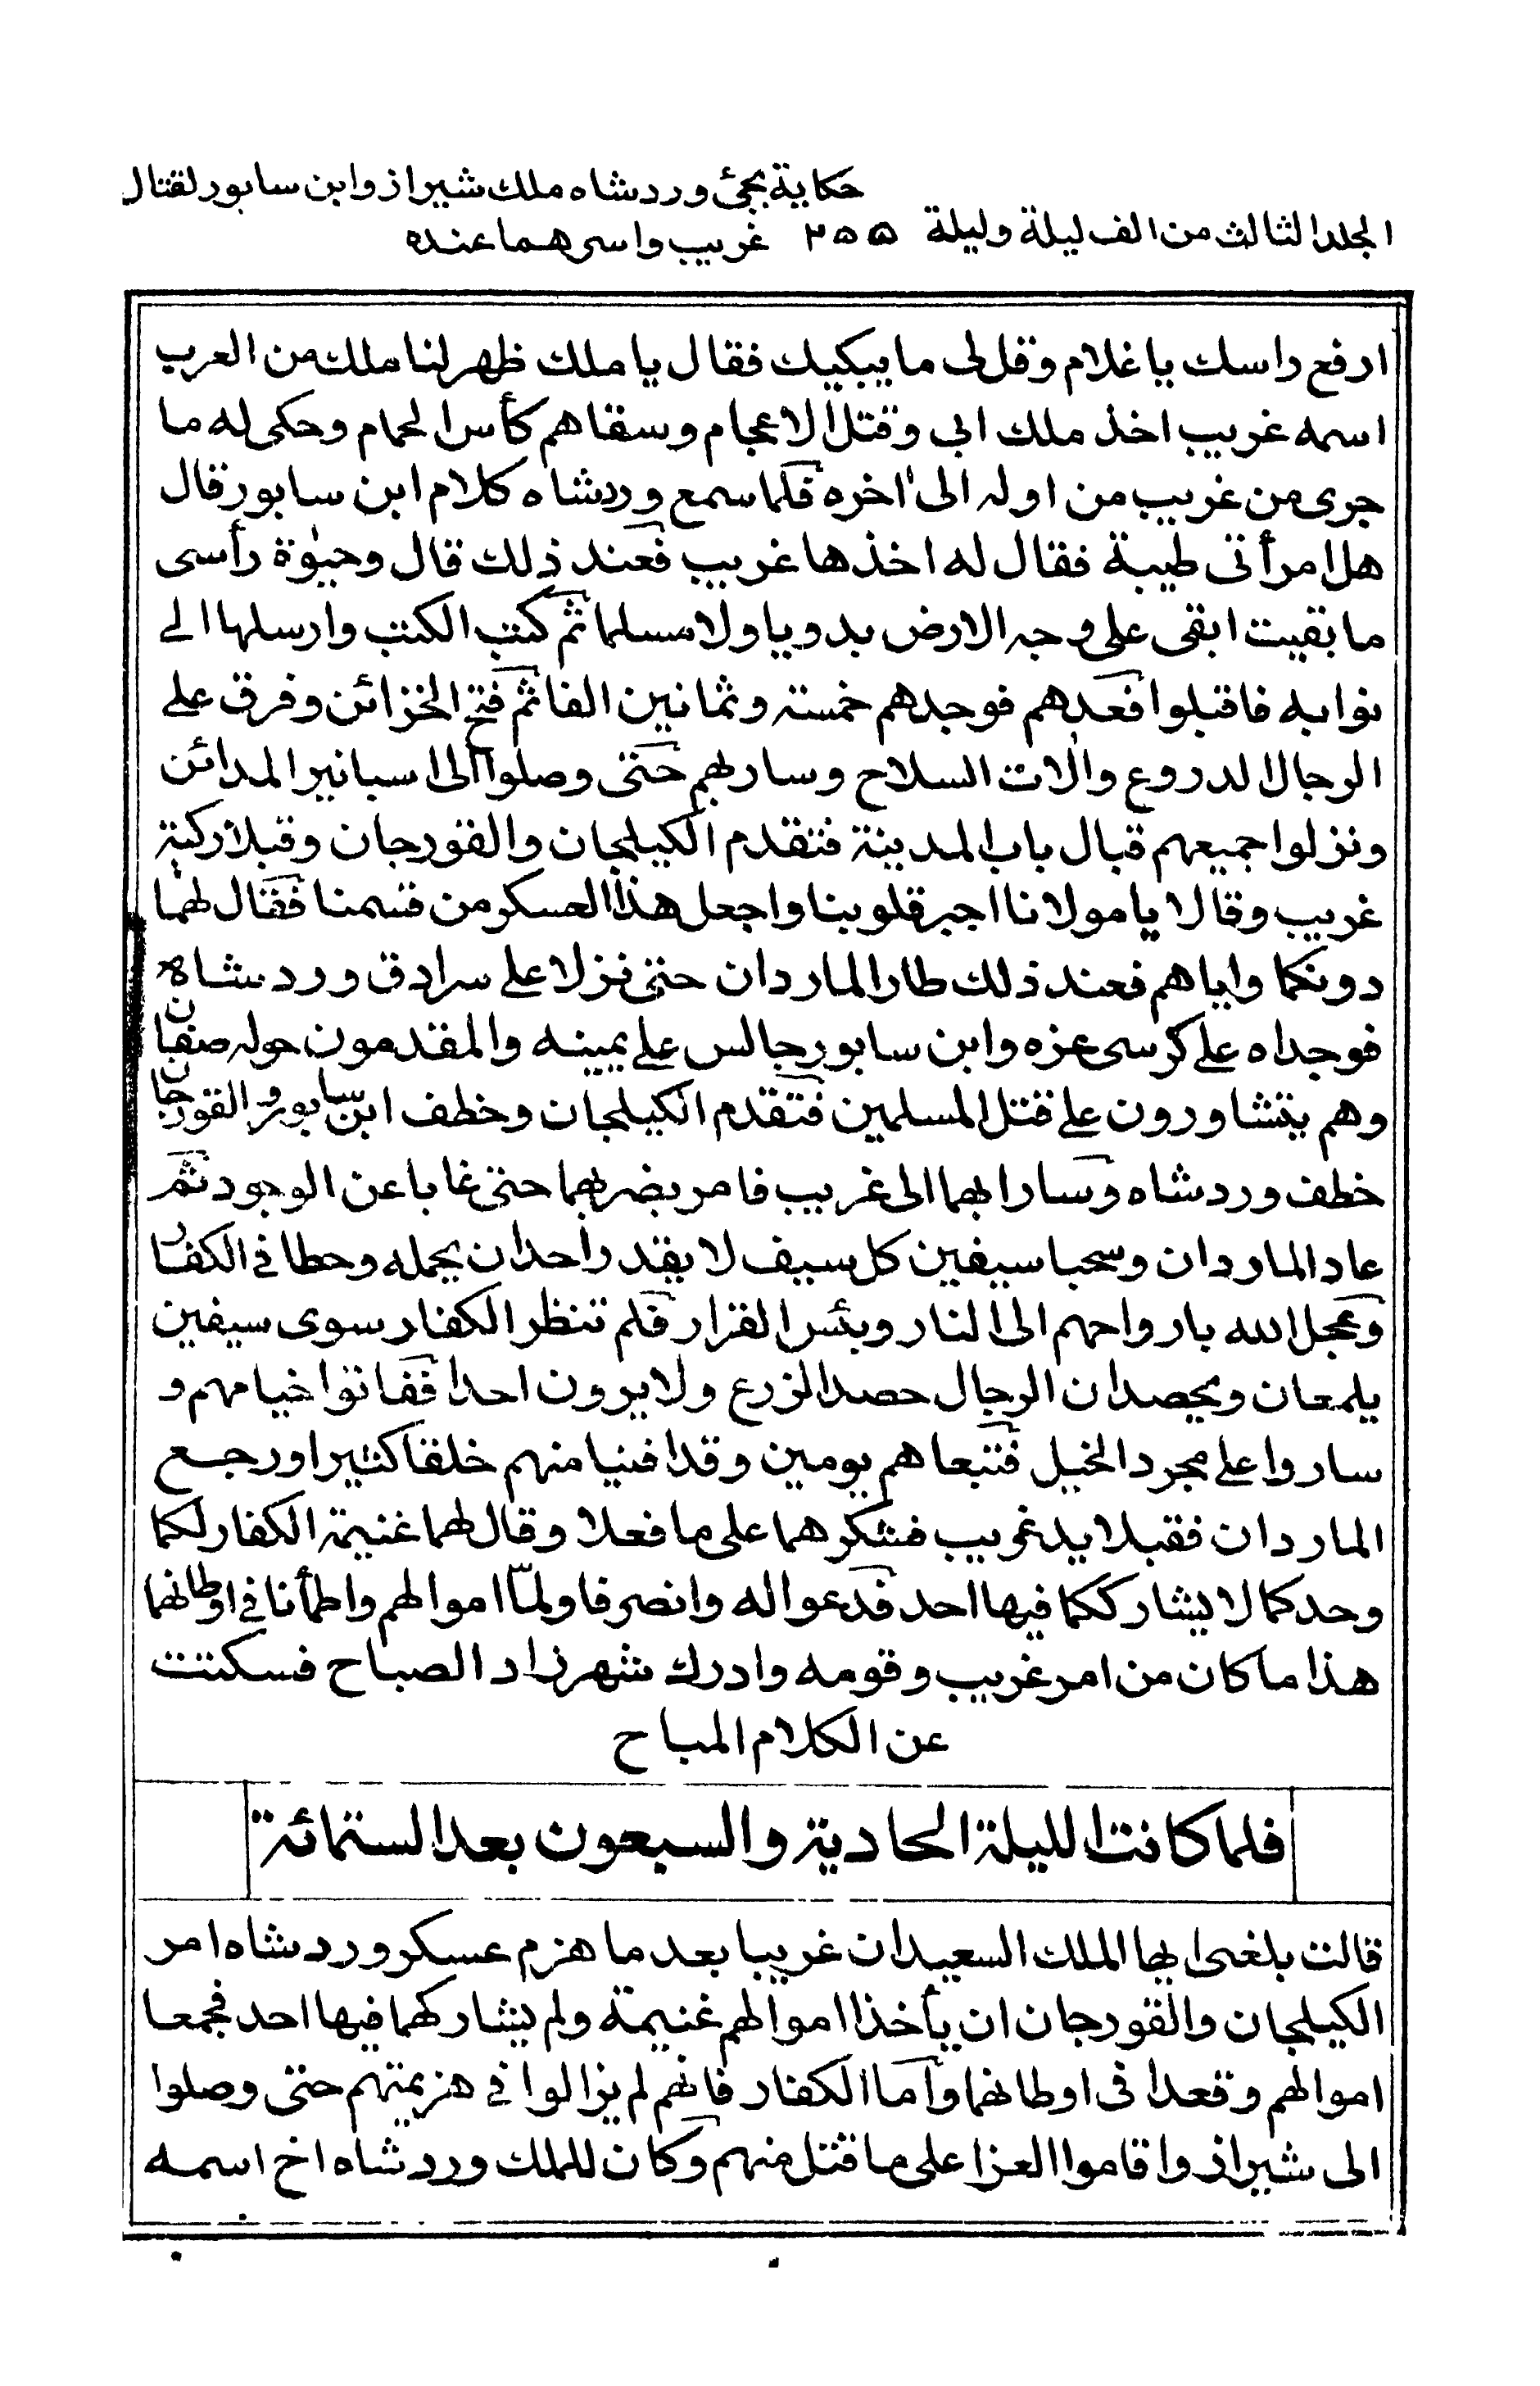 حكاية بجئ وردشاه ملك شيراز وابن سابور لقتال
المجلد الثالث من الف ليلة وليلة ٢٥٥ غريب واسرهما عنده
ارفع راسك يا غلام وقل لى ما يبكيك فقال يا ملك ظهر لنا ملك من العرب
اسمه غريب اخذ ملك ابى وقتل الاعجام وسقاهم كأس الحمام وحكى له ما
جرى من غريب من اوله الى اخره فلما سمع وردشاه كلام ابن سابور قال
هل امرأتى طيبة فقال له اخذها غريب فعند ذلك قال وحيوة رأسى
ما بقيت ابقى على وجه الارض بدويا ولا مسلما ثم كتب الكتب وارسلها الے
نوابه فاقبلوا فعدهم فوجدهم خمسة وثمانين الفا ثم فتح الخزائن وفرق على
الرجال الدروع والات السلاح وسار بهم حتى وصلوا الى اسبانير المدائن
ونزلوا جميعهم قبال باب المدينة فتقدم الكيلجان والقورجان وقبلا ركبة
غريب وقالا يا مولانا اجبر قلوبنا واجعل هذا العسكر من قسمنا فقال لهما
دونكما واياهم فعند ذلك طار الماردان حتى نزلا على سرادق وردشاه
فوجداه على كرسى عزه وابن سابور جالس على يمينه والمقدمون حوله صفان
وهم يتشاورون على قتل المسلمين فتقدم الكيلجان وخطف ابن سابور والقورجان
خطف وردشاه وسارا بهما الى غريب فامر بضربهما حتى غابا عن الوجود ثم
عاد الماردان وسحبا سيفين كل سيف لا يقدر احد ان يحمله وحطا فى الكفار
وعجل الله بارواحهم الى النار وبئس القرار فلم تنظر الكفار سوى سيفين
يلمعان ويحصدان الرجال حصد الزرع ولا يرون احدا ففاتوا خيامهم و
ساروا على مجرد الخيل فتبعاهم يومين وقد افنيا منهم خلقا كثيرا ورجع
الماردان فقبلا يد غريب فشكرهما على ما فعلا وقال لهما غنيمة الكفار لكما
وحدكما لا يشارككما فيها احد فدعوا له وانصرفا ولمّا اموالهم واطمأنا فى اوطانهما
هذا ما كان من امر غريب وقومه وادرك شهرزاد الصباح فسكتت
عن الكلام المباح
فلما كانت الليلة الحادية والسبعون بعد الستمائة
قالت بلغنى ايها الملك السعيد ان غريبا بعد ما هزم عسكر وردشاه امر
الكيلجان والقورجان ان يأخذا اموالهم غنيمة ولم يشاركهما فيها احد فجمعا
اموالهم وقعدا فى اوطانهما واما الكفار فانهم لم يزالوا فى هزيمتهم حتى وصلوا
الى شيراز واقاموا العزا على ما قتل منهم وكان للملك وردشاه اخ اسمه